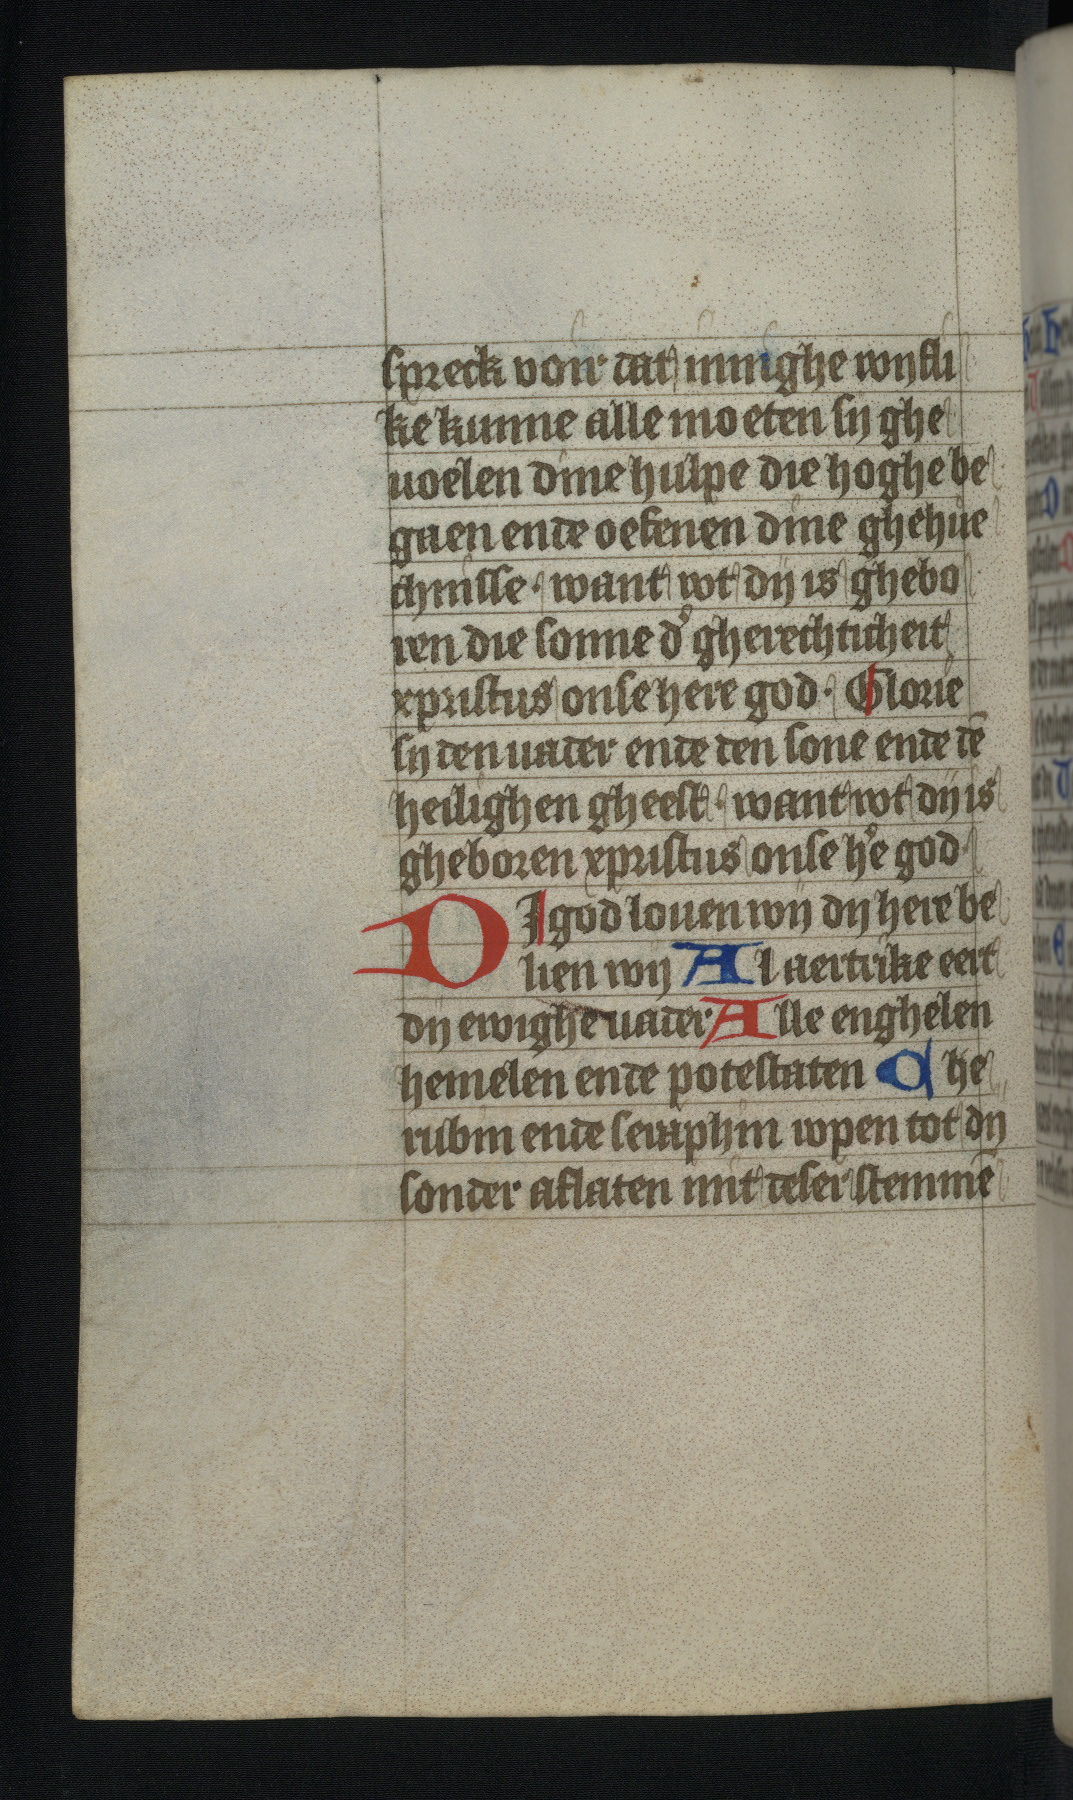 spreck voir dat innighe wijfli
ke kunne alle moeten sij ghe
uoelen dine hulpe die hoghe be
gaen ende oefenen dine ghehue
chnisse · want wt dij is ghebo
ren die sonne d' gherechticheit
xpristus onse here god · Glorie
sij den uader ende den sone ende dē
heilighen gheest · want wt dij is
gheboren xpristus onse h'e god
DI god louen wij dij here be
lien wij Al aertrike eert
dij ewighe uader Alle enghelen
hemelen ende potestaten Che
rubin ende seraphin wpen tot dij
sonder aflaten mit deser stemmē